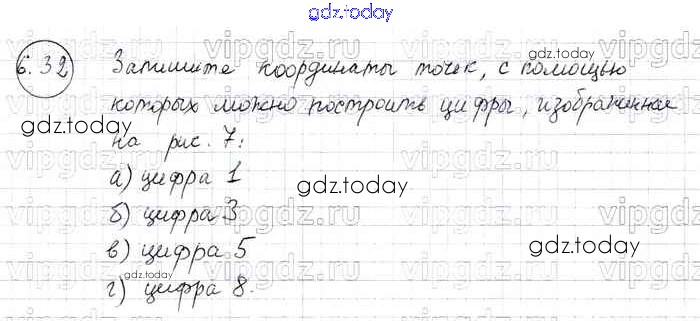 gdz.today
6.32 Запишите координаты точек, с помощью
которых можно построить цифры, изображенные
на рис. 7:
а) цифра 1
б) цифра 3
в) цифра 5
г) цифра 8.
gdz.today
gdz.today
gdz.today
gdz.today
gdz.today
vipgdz.ru